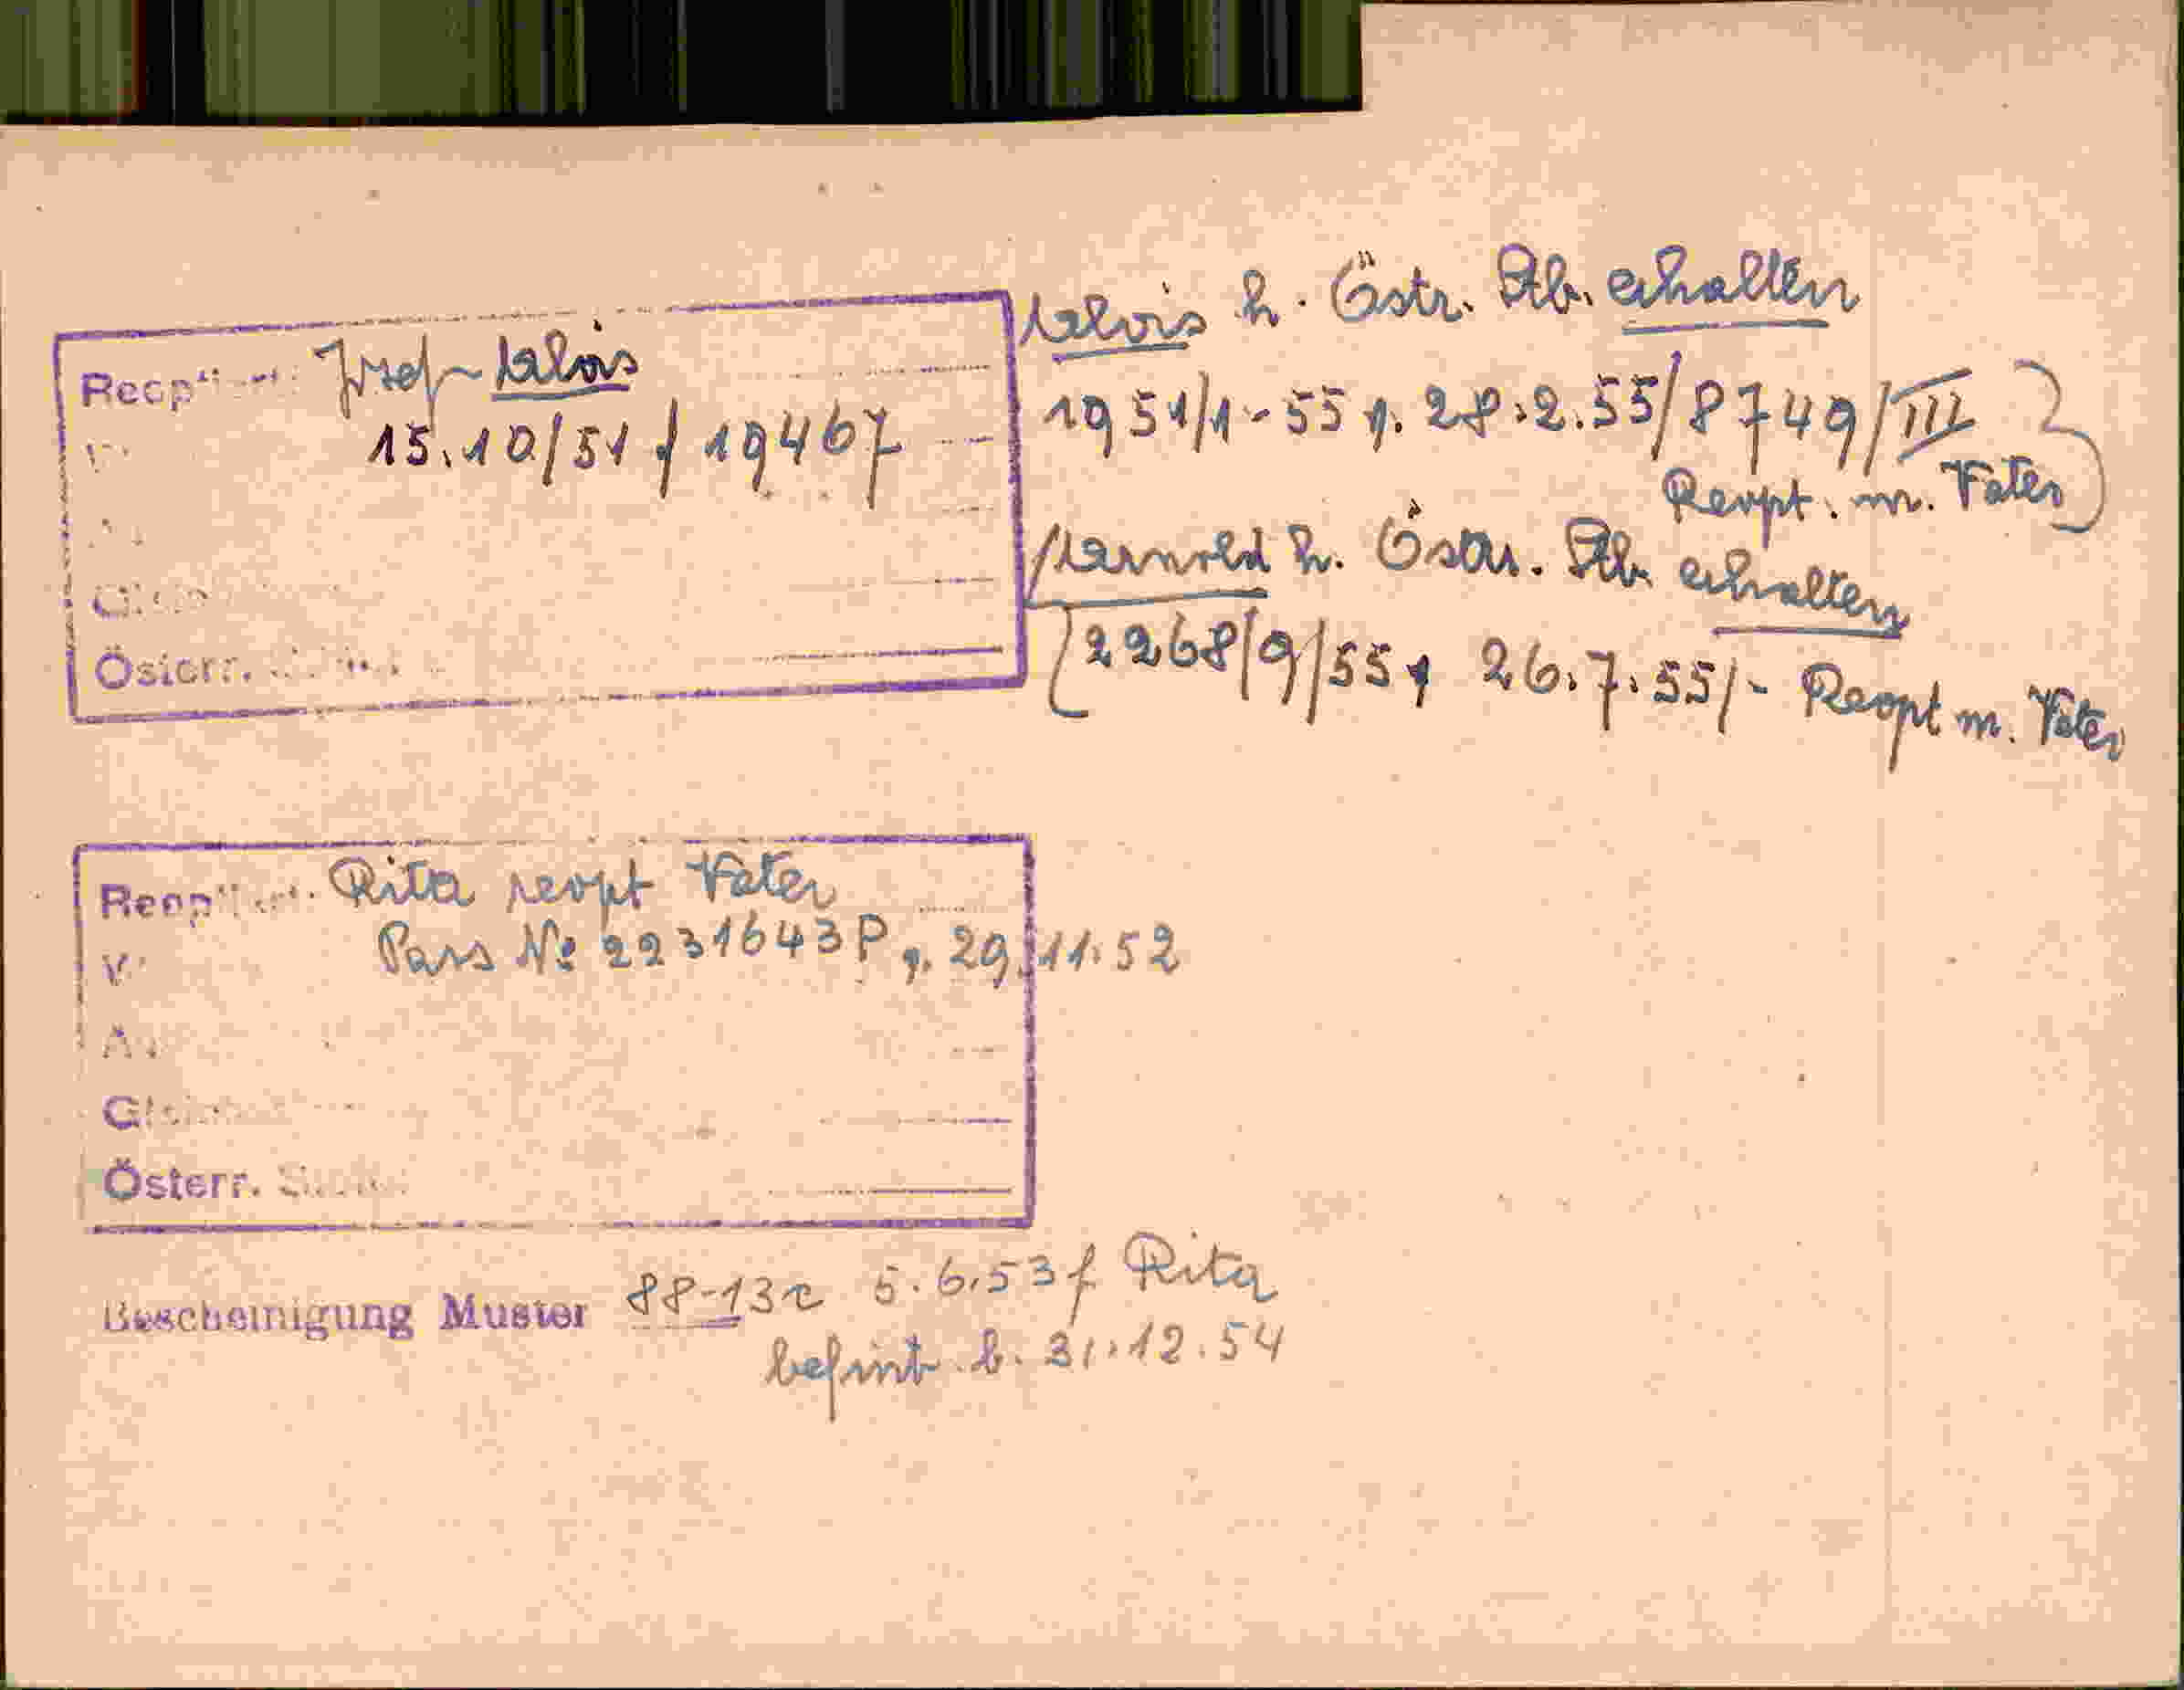 Josef - Alois
15.10/51 / 19467
Österr.
Alois h. Östr. Stb. erhalten
1951/1-55 v. 28.2.55/8749/III
Reopt. m. Vater)
Arnold h. Östr. Stb. erhalten
(2268/9/55 v 26.7.55/- Reopt m. Vater
Rita reopt Vater
Pass № 2231643P v. 29.11.52
Österr.
Bescheinigung Muster 88-13r 5.6.53 f Rita
b. 31.12.54